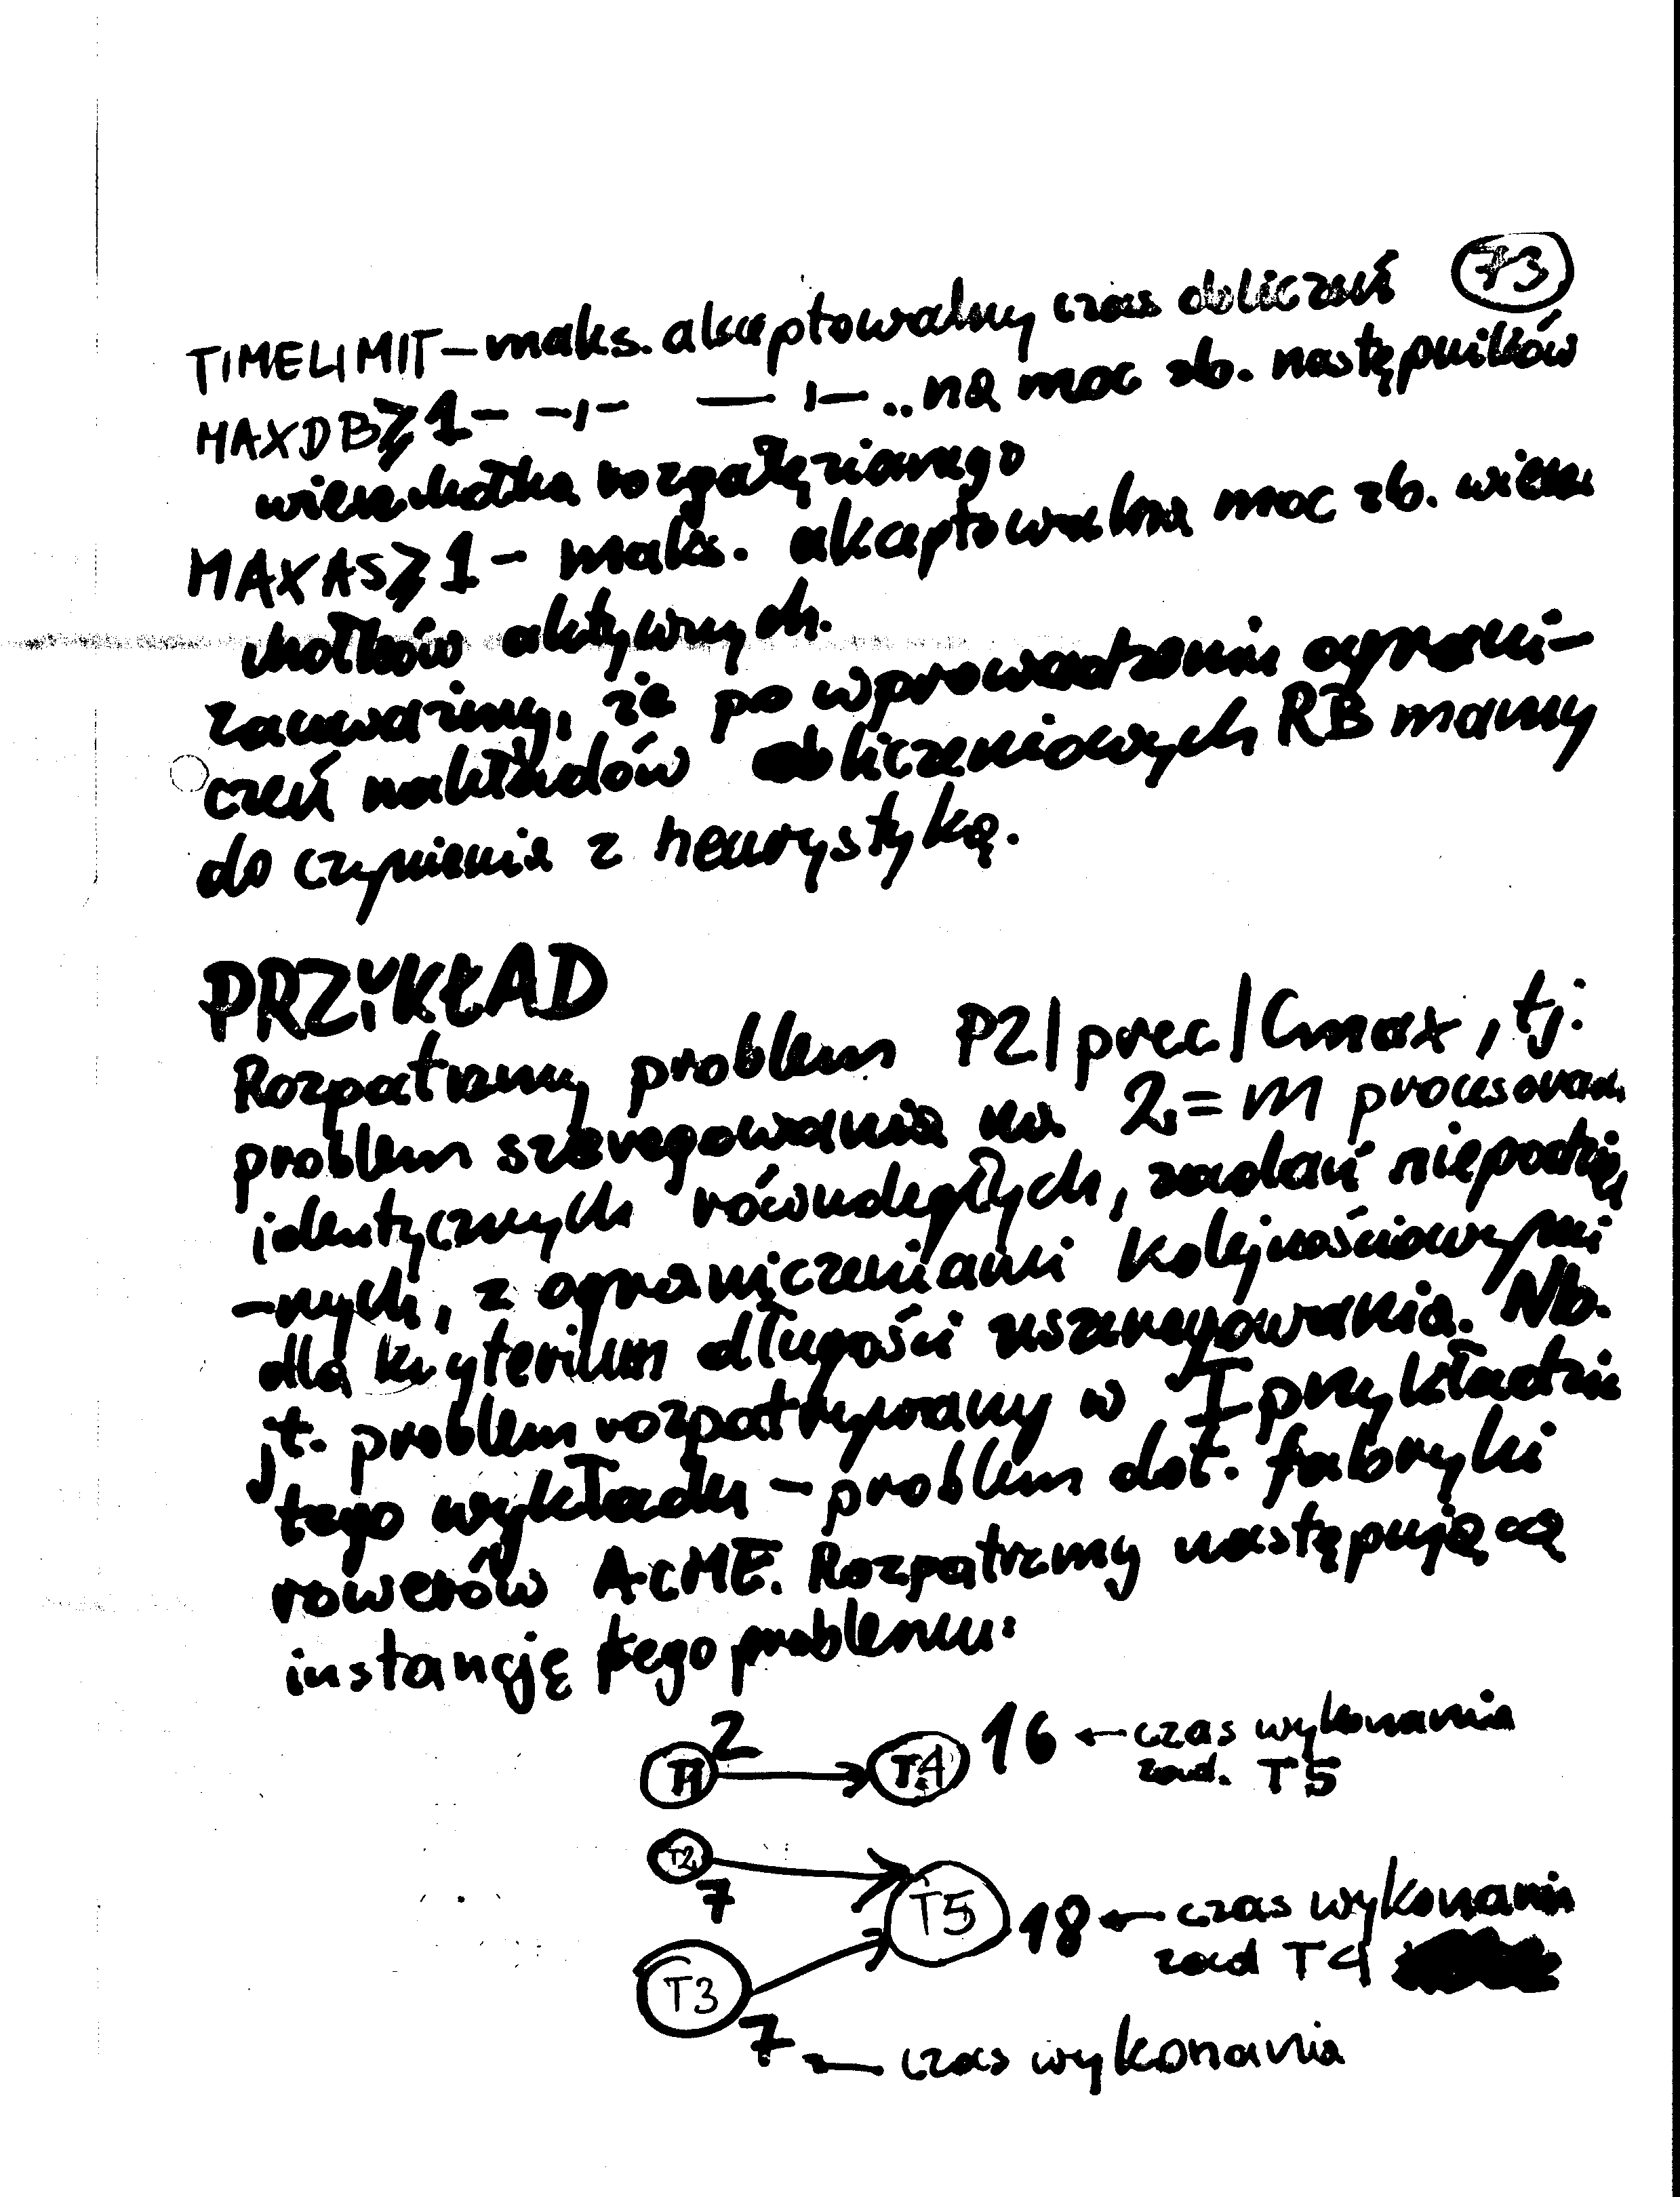 73
TIMELIMIT – maks. akceptowalny czas obliczeń
MAXDB ⩾ 1 – –ı– — ı— .. na moc zb. następników
wierzchołka rozgałęzianego
MAXAS ⩾ 1 – maks. akceptowalna moc zb. wierz
chołków aktywnych.
zauważmy, że po wprowadzeniu ograni-
czeń nakładów obliczeniowych RB mamy
do czynienia z heurystyką.
PRZYKŁAD
Rozpatrzmy problem P2|prec|Cmax, tj:
problem szeregowania na 2 = m procesorach
identycznych równoległych, zadań niepodziel
-nych, z ograniczeniami kolejnościowymi
dla kryterium długości uszeregowania. Nb.
jt. problem rozpatrywany w I przykładzie
tego wykładu – problem dot. fabryki
rowerów ACME. Rozpatrzmy następującą
instancję tego problemu:
T1 2 → T4 16 ← czas wykonania
zad. T5
T2 7
T5 18 ← czas wykonania
zad T4
T3
7 ← czas wykonania